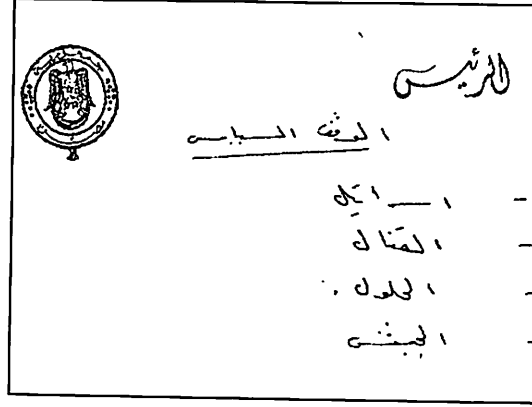 الرئيس
الموقف السياسى
- اسرائيل
- القتال
- الحلول .
- الجيش